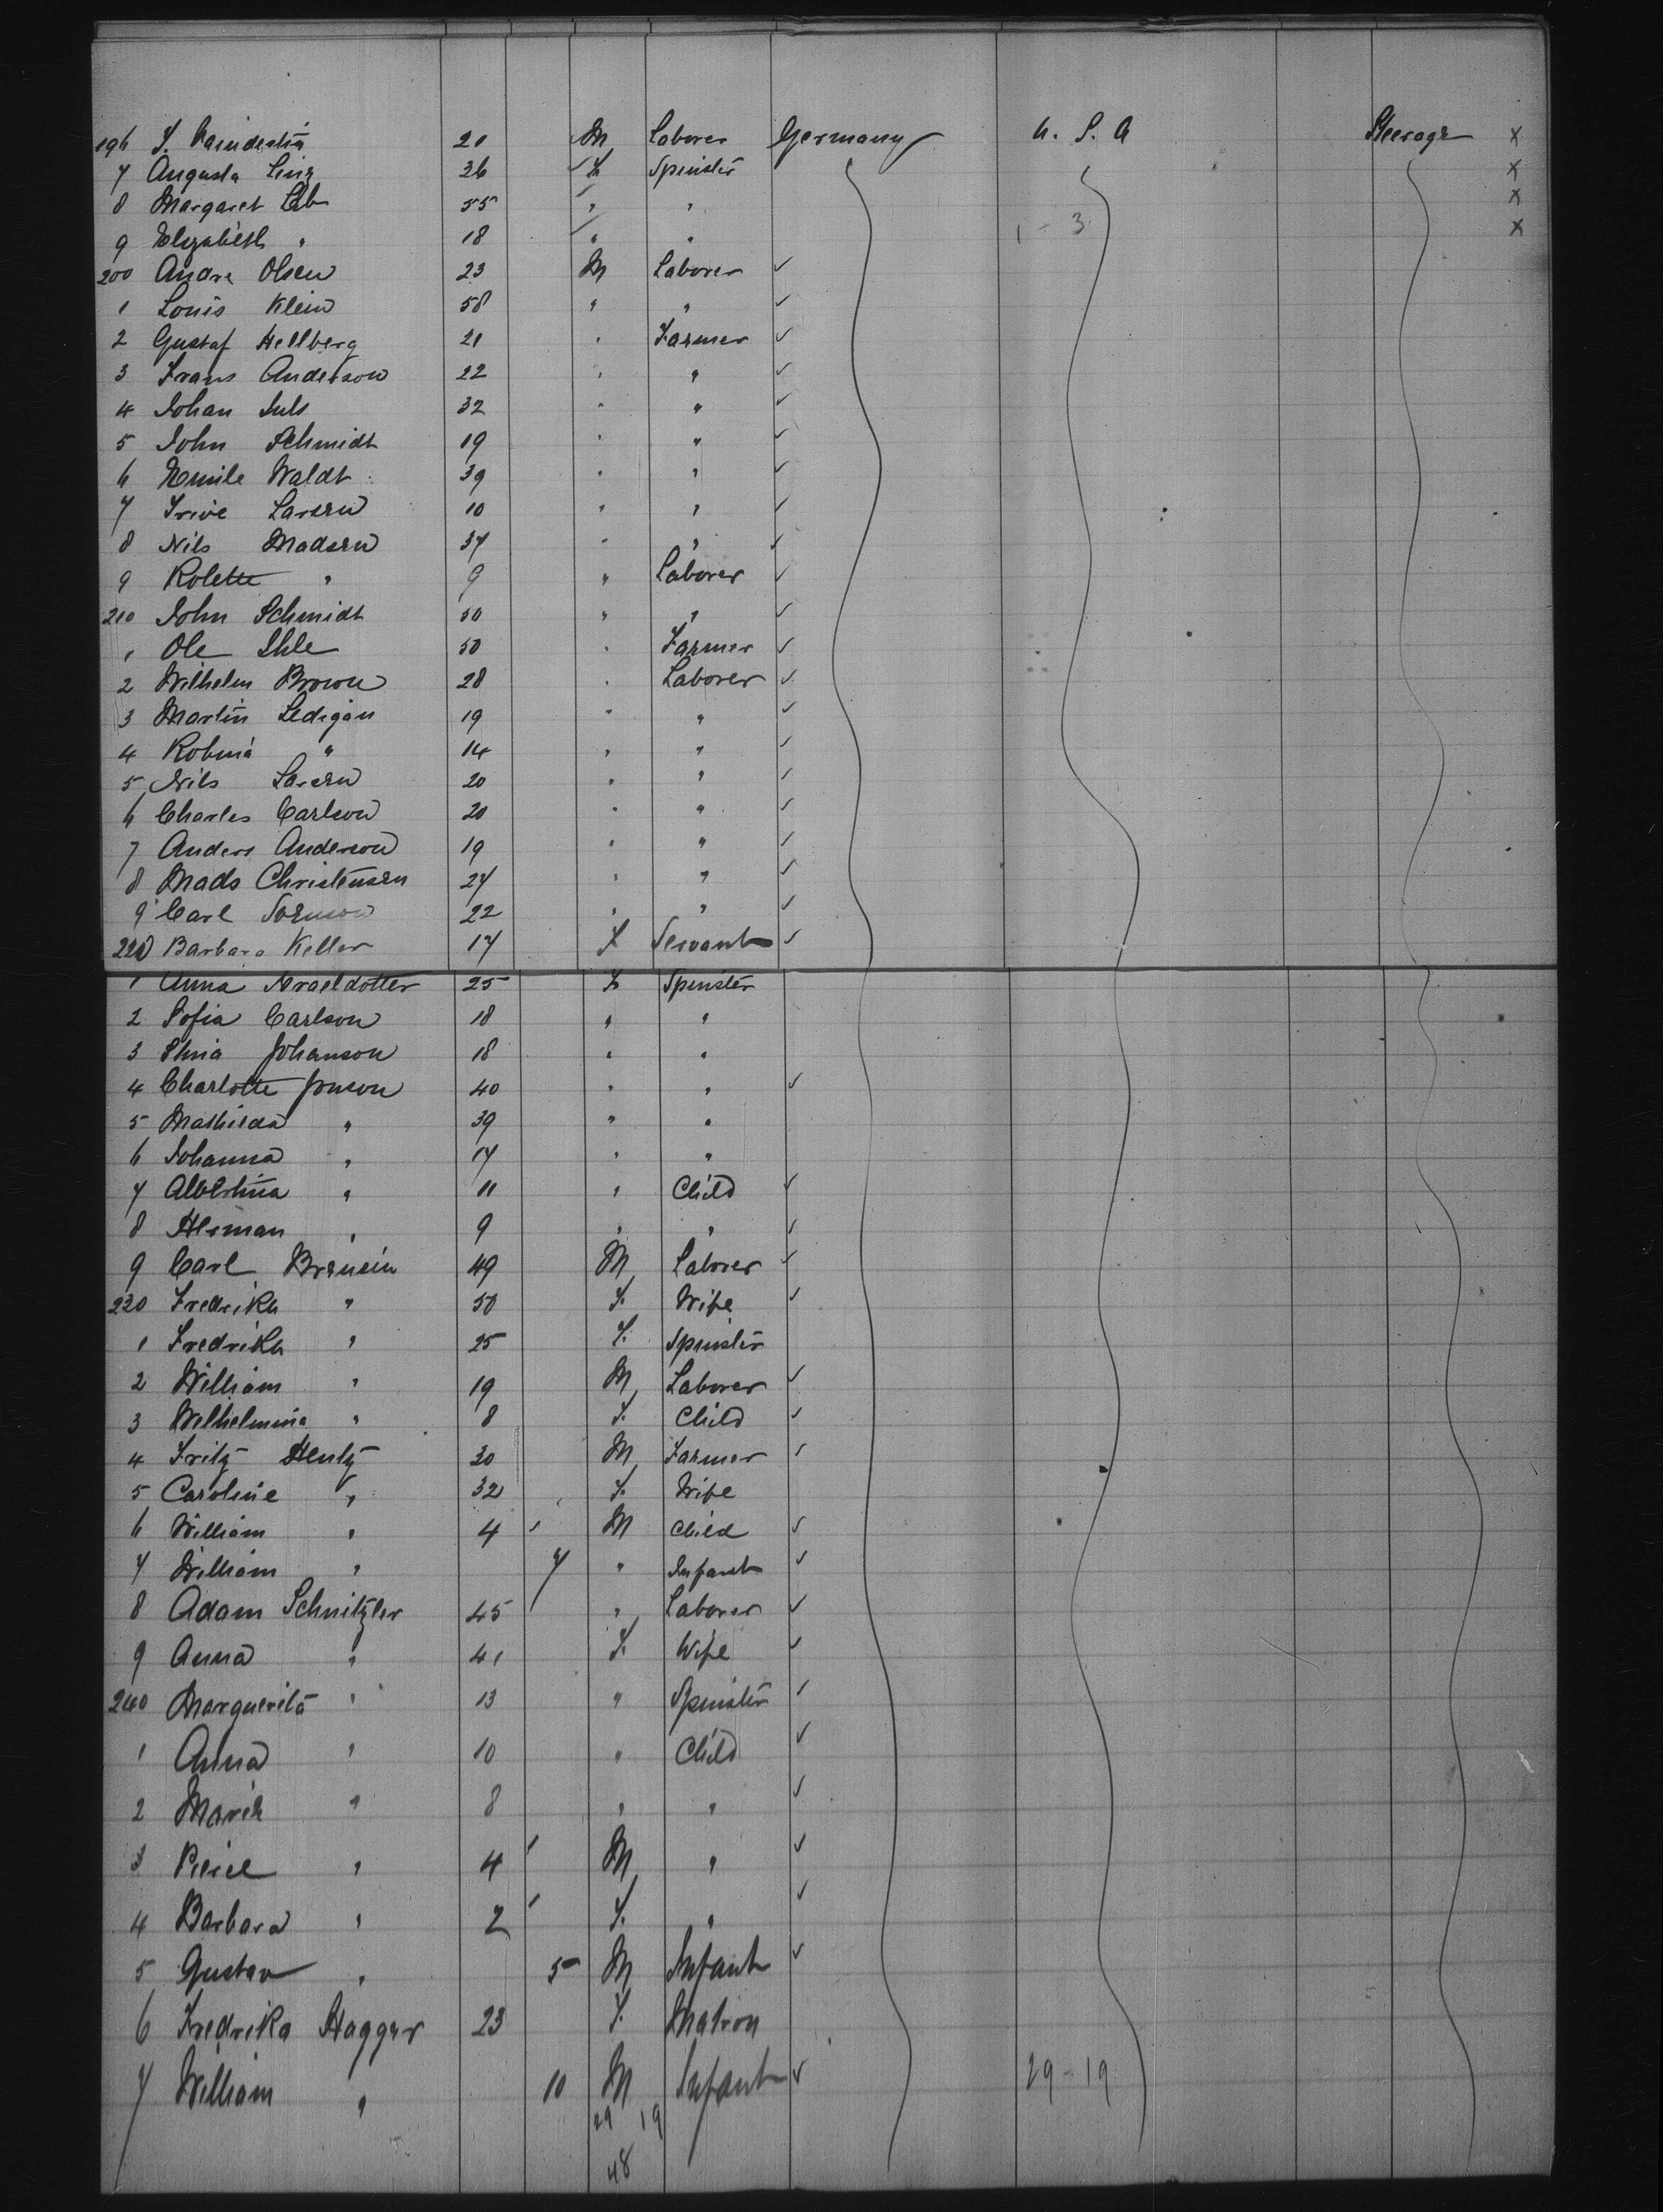 196 20 M Laborer Germany U. S. A Steerage x
7 Augusta Linz 36 F Spinster x
8 Margaret Lib 55 " " x
9 Elizabeth " 18 " " 1 - 3 x
200 Andre Olsen 23 M Laborer ✓
1 Louis Klein 58 " " ✓
2 Gustaf Hellberg 21 " Farmer ✓
3 Frans Anderson 22 " " ✓
4 Johan 32 " " ✓
5 John Schmidt 19 " " ✓
6 Emile Waldt 39 " " ✓
7 Larsen 10 " " ✓
8 Nils Madsen 37 " " ✓
9 Kolette " 9 " Laborer ✓
210 John Schmidt 50 " " ✓
1 Ole Ihle 50 " Farmer ✓
2 Wilhelm Brown 28 " Laborer ✓
3 Martin Ledigan 19 " " ✓
4 " 14 " " ✓
5 Nils Larsen 20 " " ✓
6 Charles Carlson 20 " " ✓
7 Anders Anderson 19 " " ✓
8 Mads Christensen 27 " " ✓
9 Carl Sornson 22 " " ✓
220 Barbara Keller 17 F Servant ✓
1 Anna 25 F Spinster
2 Sofia Carlson 18 " "
3 Johanson 18 " "
4 Charlotte Jonson 40 " " ✓
5 Mathilda " 39 " "
6 Johanna " 17 " "
7 Albertina " 11 " Child ✓
8 Herman " 9 " " ✓
9 Carl 49 M Laborer ✓
230 Fredrika " 50 F. Wife ✓
1 Fredrika " 25 F. Spinster
2 William " 19 M Laborer ✓
3 Wilhelmina " 8 F. Child ✓
4 Fritz Hentz 30 M Farmer ✓
5 Caroline " 32 F. Wife
6 William " 4 ✓ M Child ✓
7 William " 7 " Infant ✓
8 Adam Schnitzler 45 " Laborer ✓
9 Anna " 41 F. Wife ✓
240 Marguerita " 13 " Spinster ✓
1 Anna " 10 " Child ✓
2 Marie " 8 " " ✓
3 " 4 ✓ M " ✓
4 Barbara " 2 ✓ F. " ✓
5 Gustav " 5 M Infant ✓
6 Fredrika Hagger 23 F. Matron
7 William " 10 M Infant ✓ 29 - 19
29 19
48